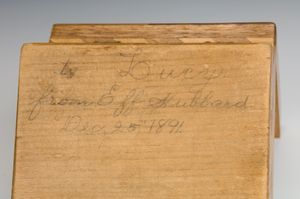 to Lucy
from Eff Hubbard
Dec, 25" 1891